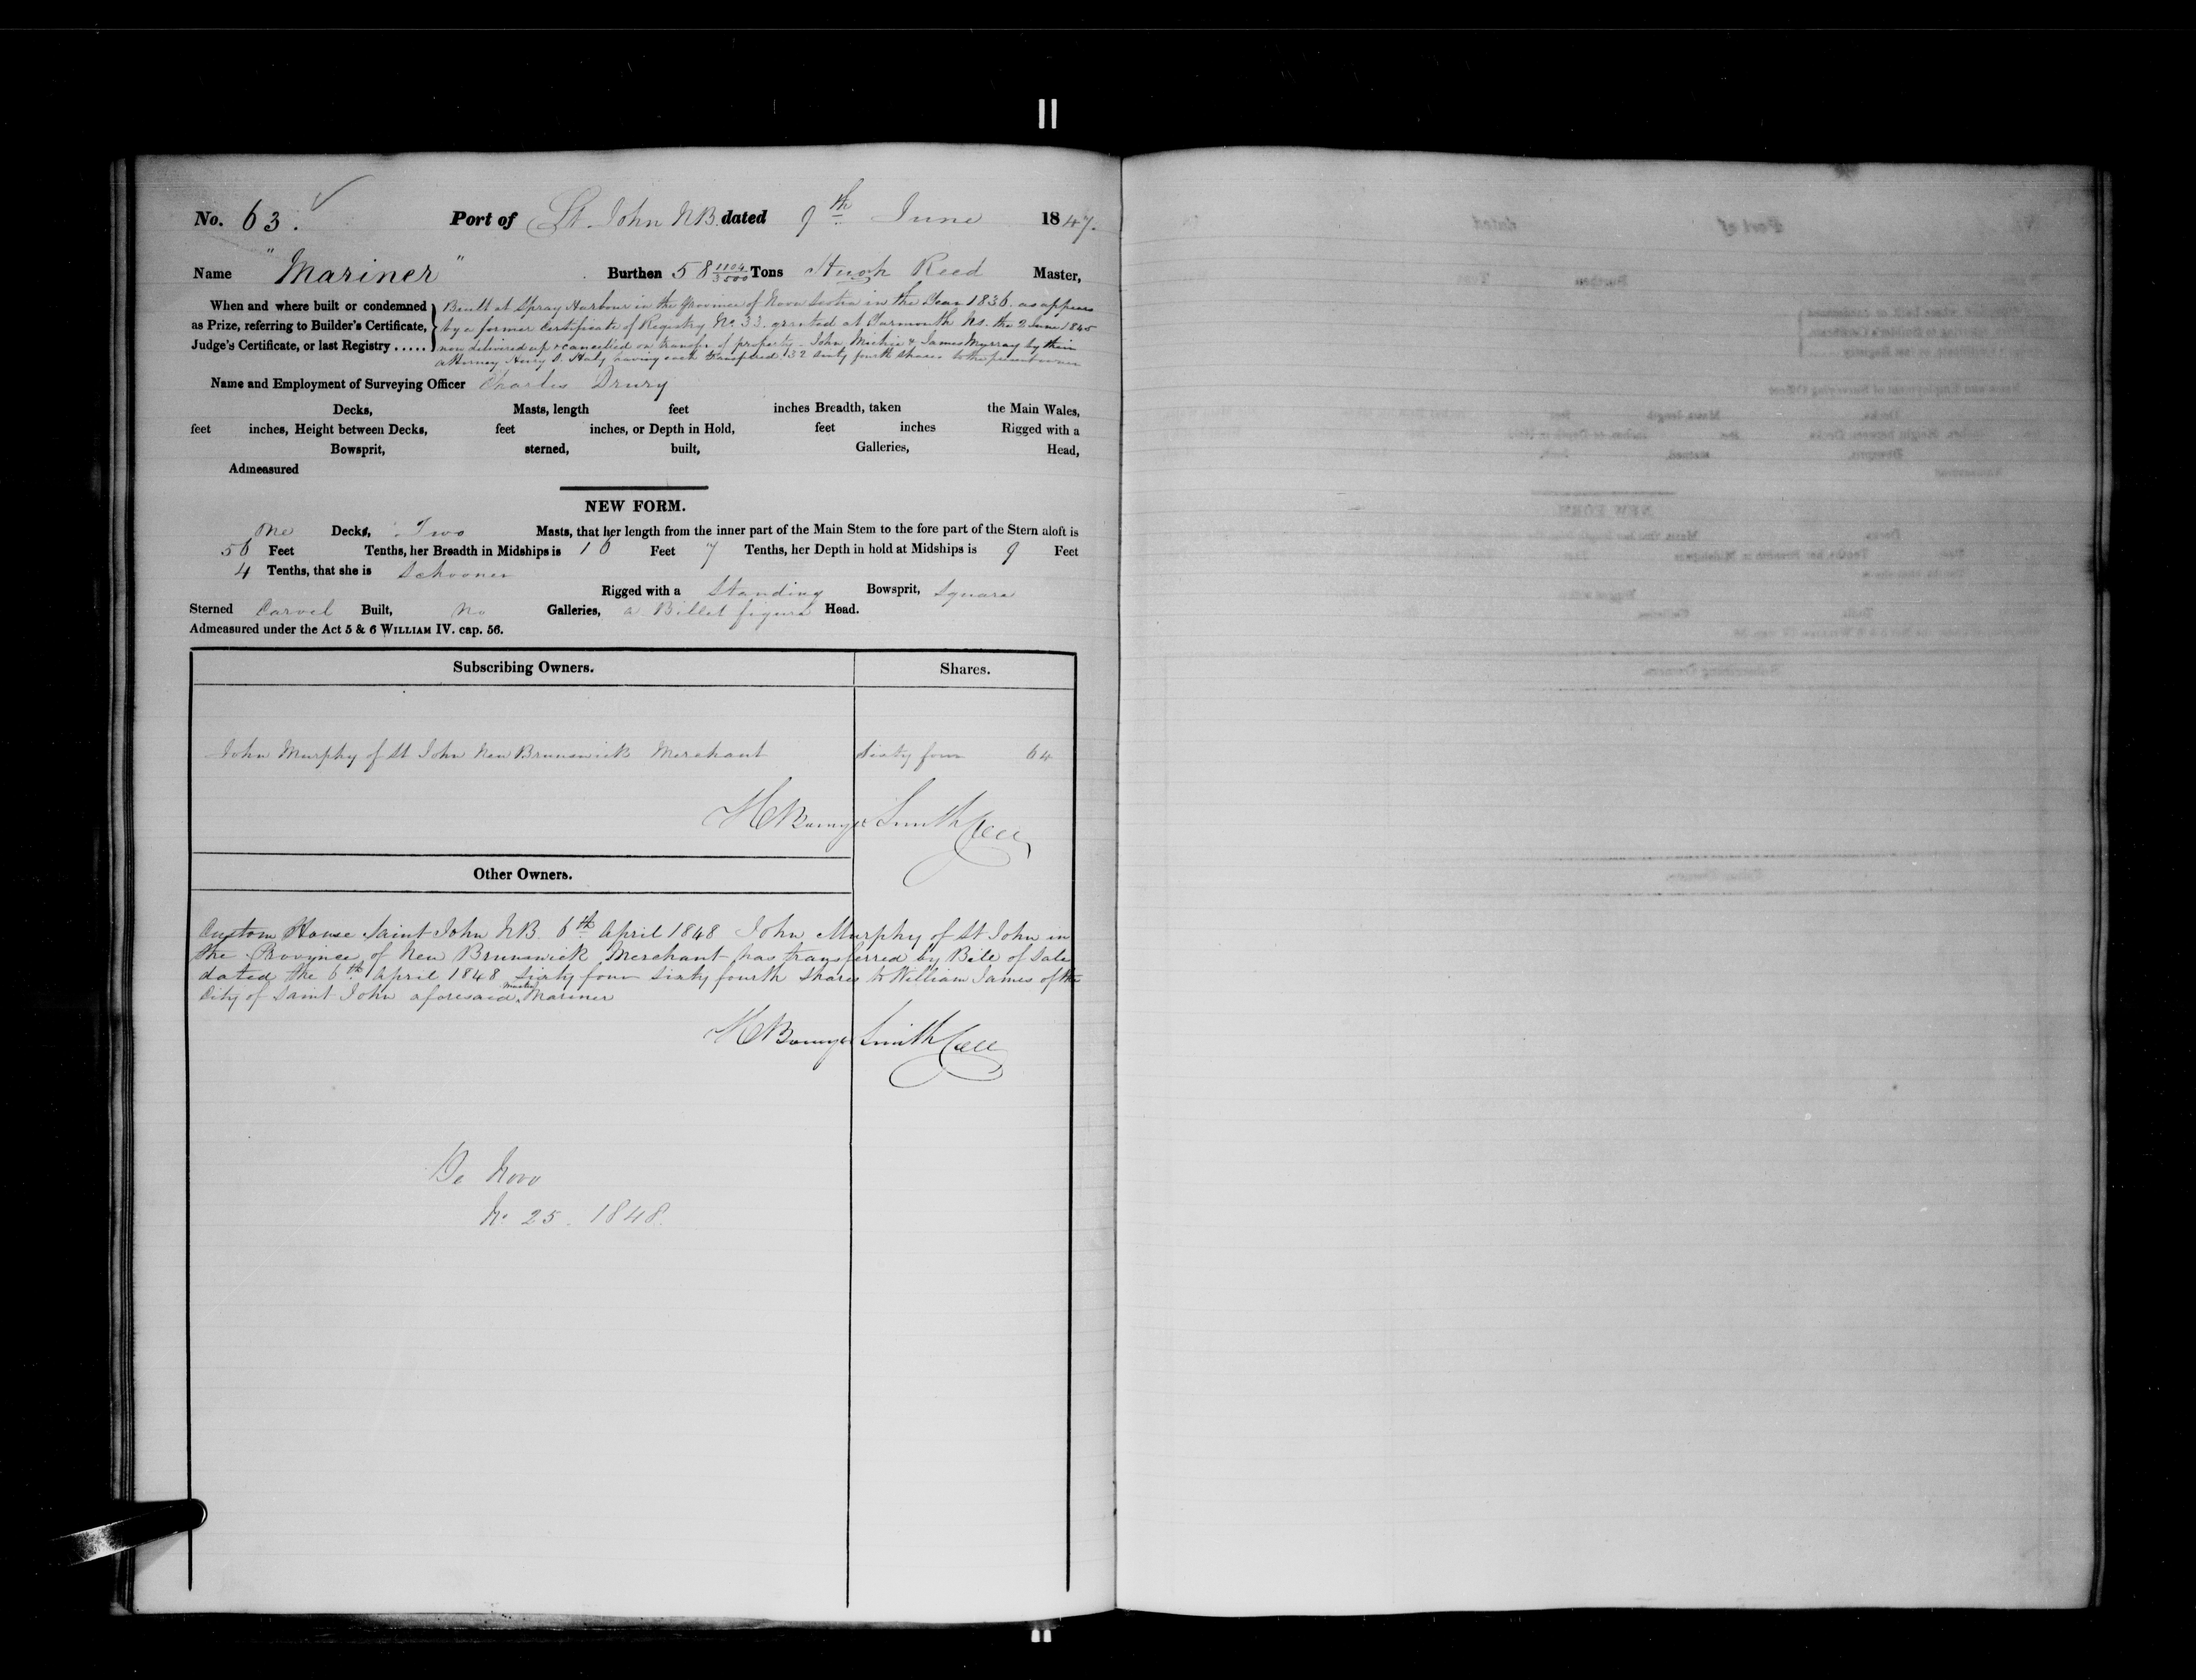 No. 63. Port of St. John NB. dated 9th June 1847.
Name "Mariner" Burthen 58 1104/3500 Tons Hugh Reed Master,
When and where built or condemned as Prize, referring to Builder's Certificate, Judge's Certificate, or last Registry.....
Built at Spray Harbour in the Province of Nova Scotia in the Year 1836. as appears
by a former Certificate of Registry No. 33. granted at Yarmouth Ns. the 2 June 1845
now delivered up & cancelled on transfer of property - John Michie & James Murray by their
attorney having each transferred 32 sixty fourth shares to the present owner
Name and Employment of Surveying Officer Charles Drury
Decks, Masts, length feet inches Breadth, taken the Main Wales,
feet inches, Height between Decks, feet inches, or Depth in Hold, feet inches Rigged with a
Bowsprit, sterned, built, Galleries, Head,
Admeasured
NEW FORM.
One Decks, Two Masts, that her length from the inner part of the Main Stem to the fore part of the Stern aloft is
56 Feet Tenths, her Breadth in Midships is 16 Feet 7 Tenths, her Depth in hold at Midships is 9 Feet
4 Tenths, that she is Schooner
Rigged with a Standing Bowsprit, Square
Sterned Carvel Built, No Galleries, a Billet figure Head.
Admeasured under the Act 5 & 6 WILLIAM IV. cap. 56.
Subscribing Owners. Shares.
John Murphy of St John New Brunswick Merchant Sixty four 64
H Bowyer Smith Coll
Other Owners.
Custom House Saint John NB 6th April 1848 John Murphy of St John in
the Province of New Brunswick Merchant has transferred by Bill of Sale
dated the 6th April 1848 Sixty four Sixty fourth Shares to William James of the
City of Saint John aforesaid, Master Mariner
H Bowyer Smith Coll
De Novo
No 25. 1848.